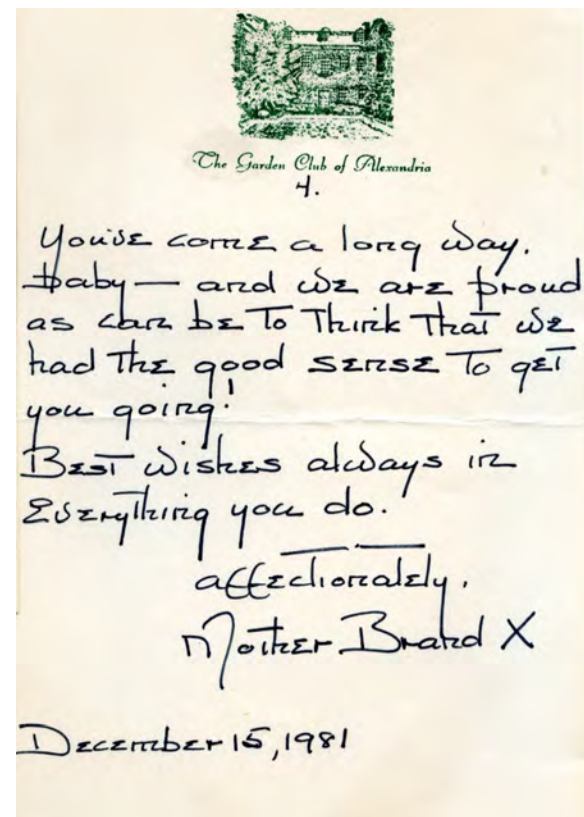 The Garden Club of Alexandria
4.
You've come a long way.
Baby — and we are proud
as can be to think that we
had the good sense to get
you going!
Best wishes always in
Everything you do.
affectionately,
Mother Brand X
December 15, 1981